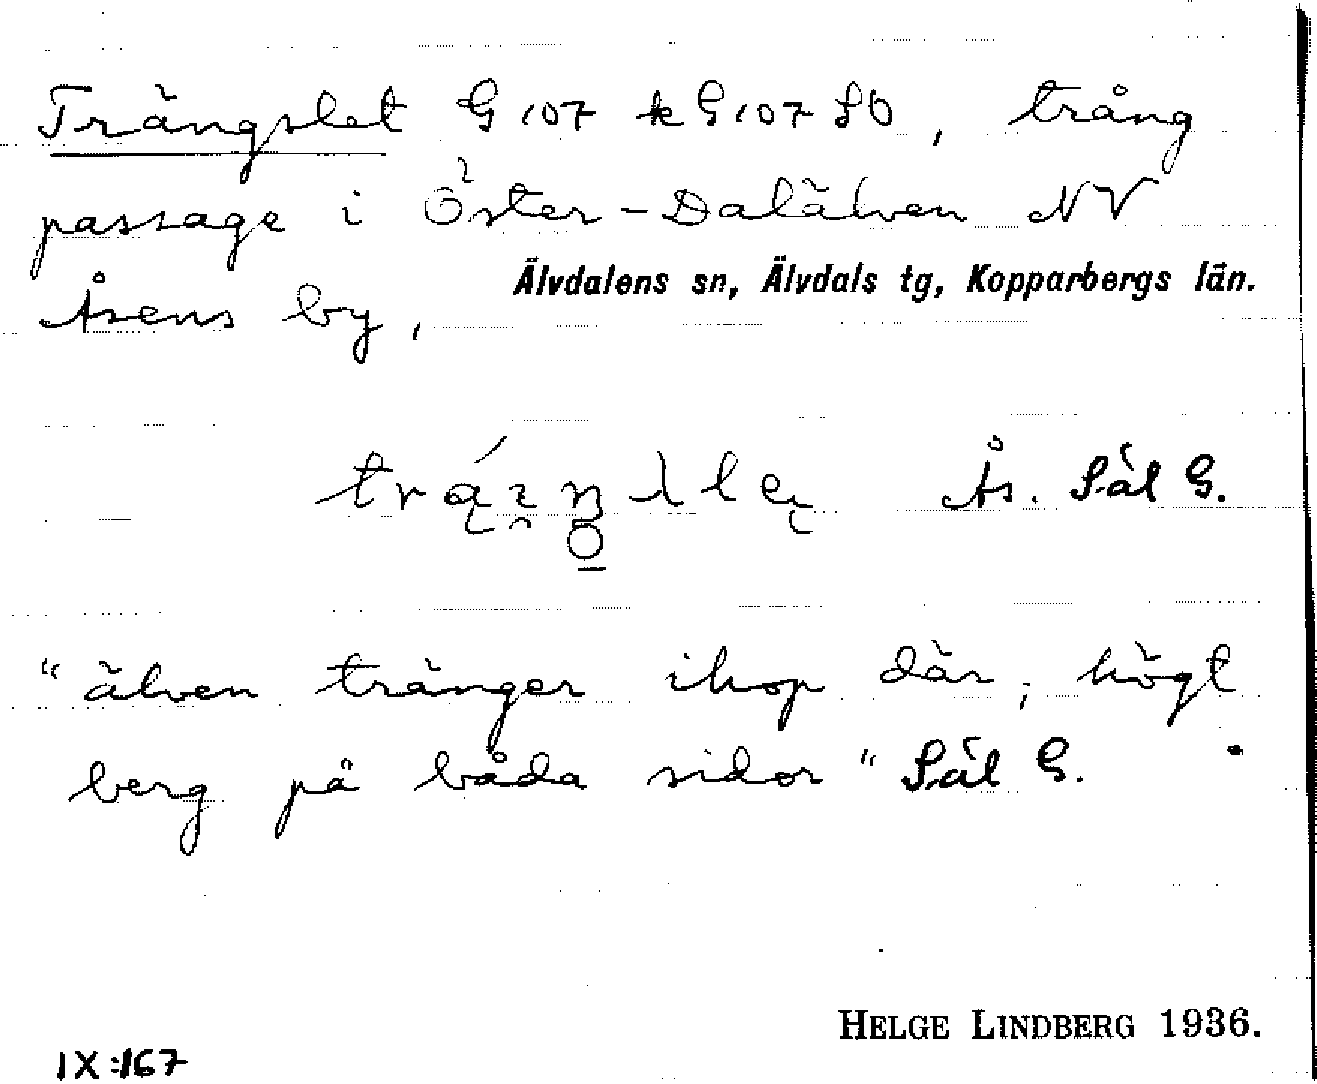 Trängslet G 107 k G 107 SO, trång
passage i Öster-Dalälven NV
Älvdalens sn, Älvdals tg, Kopparbergs län.
Åsens by,
Ås. Säl G.
"älven tränger ihop där, högt
berg på båda sidor" Säl G.
HELGE LINDBERG 1936.
IX:167